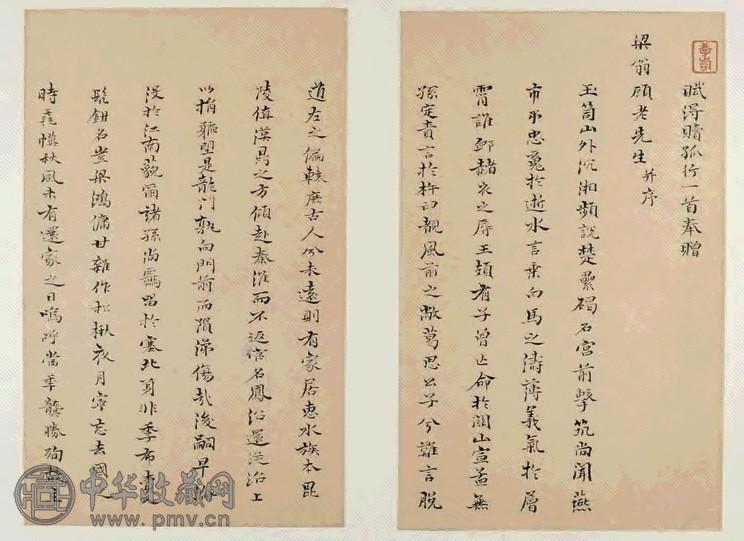 賦得贖孤行一首奉贈
梁翁顧老先生 并序
玉笥山外沉湘頻說楚纍碣石宮前擊筑尚聞燕
市弔忠魂於逝水言乘白馬之濤薄義氣於層
霄誰卹赭衣之辱王有子曾亡命於關山宣孟無
孫定責言於杵臼靚風前之敝葛思公子兮難言脫
道左之偏轅庶古人兮未遠則有家居惠水族本毘
陵值漢之方傾赴秦淮而不返信名鳳沼還從沼上
以捐軀望是龍門孰向門前而隕涕傷哉後嗣早
沒於江南藐爾諸孫尚羈留於塞北身非季布
髡鉗名豈梁鴻傭甘雜作松楸夜月寧忘去國
時毳幙秋風未有還家之日嗚呼當年龔勝殉
中华收藏网
www.pmv.cn